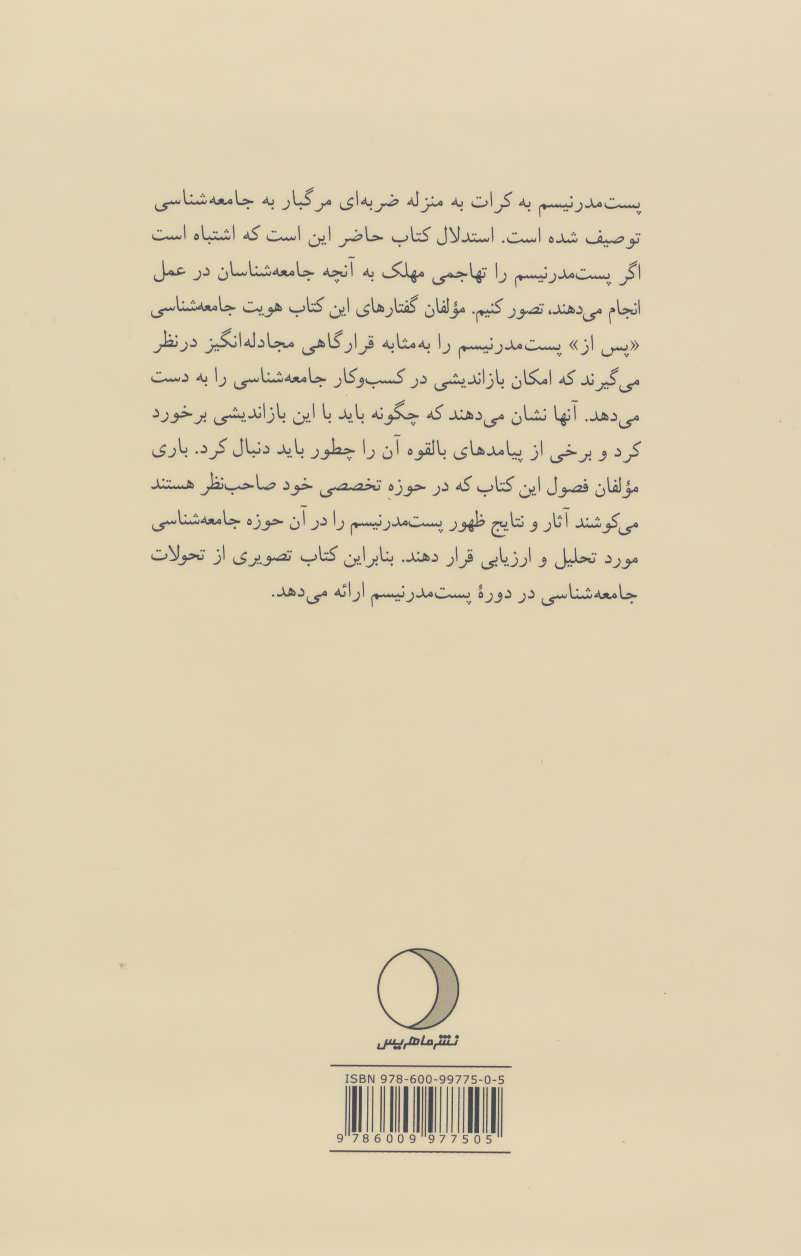 پست‌مدرنیسم به کرات به منزله ضربه‌ای مرگبار به جامعه‌شناسی
توصیف شده است. استدلال کتاب حاضر این است که اشتباه است
اگر پست‌مدرنیسم را تهاجمی مهلک به آنچه جامعه‌شناسان در عمل
انجام می‌دهند، تصور کنیم. مؤلفان گفتارهای این کتاب هویت جامعه‌شناسی
«پس از» پست‌مدرنیسم را به‌مثابه قرارگاهی مجادله‌انگیز درنظر
می‌گیرند که امکان بازاندیشی در کسب‌وکار جامعه‌شناسی را به دست
می‌دهد. آنها نشان می‌دهند که چگونه باید با این بازاندیشی برخورد
کرد و برخی از پیامدهای بالقوه آن را چطور باید دنبال کرد. باری
مؤلفان فصول این کتاب که در حوزه تخصصی خود صاحب‌نظر هستند
می‌کوشند آثار و نتایج ظهور پست‌مدرنیسم را در آن حوزه جامعه‌شناسی
مورد تحلیل و ارزیابی قرار دهند. بنابراین کتاب تصویری از تحولات
جامعه‌شناسی در دورهٔ پست‌مدرنیسم ارائه می‌دهد.
نشر ماهریس
ISBN 978-600-99775-0-5
9 786009 977505